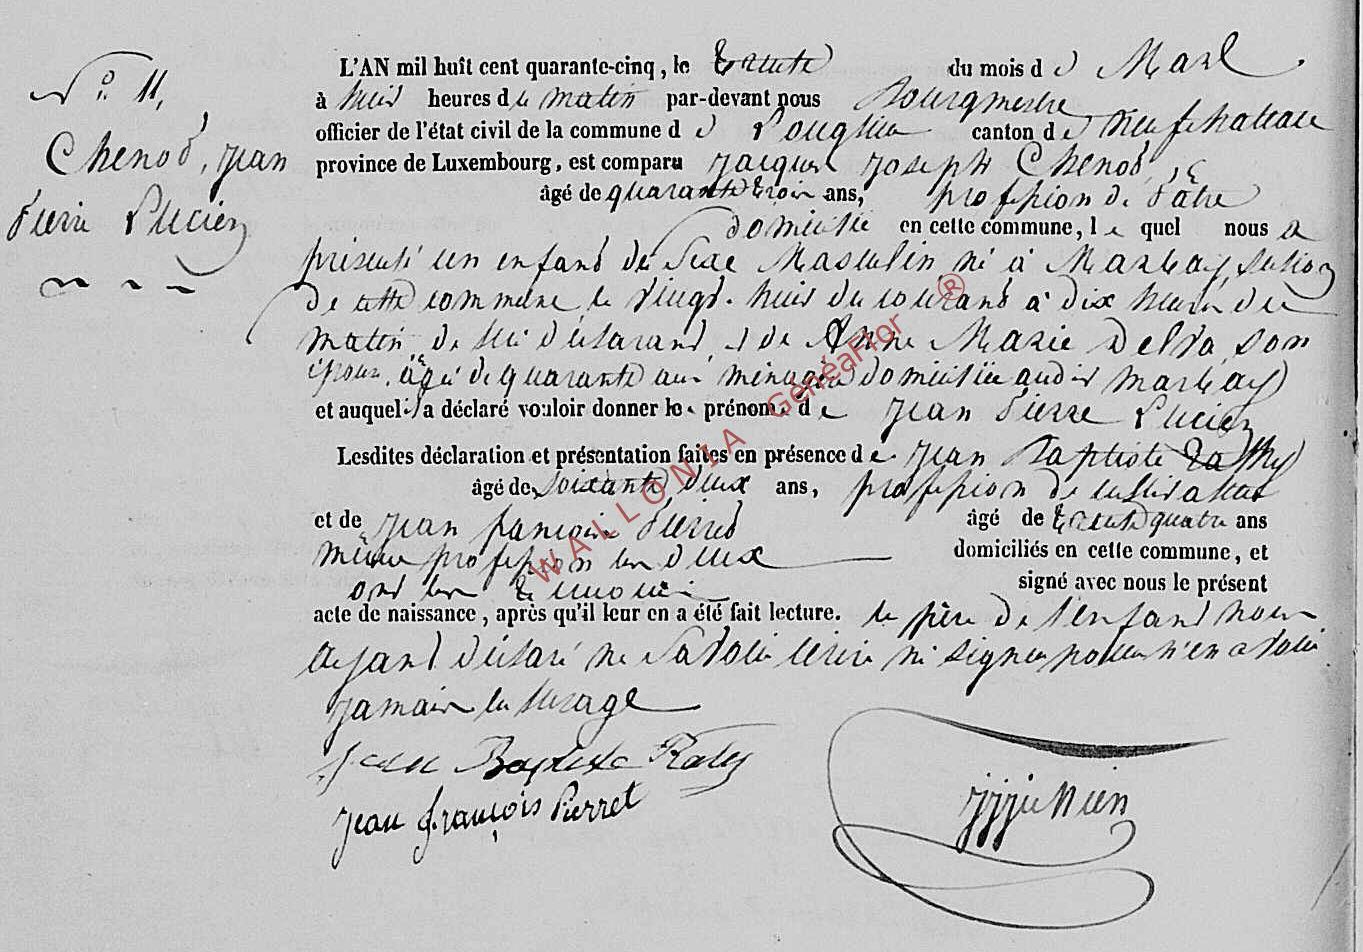 N.° 11,
Chenot, Jean
Pierre Lucien
L'AN mil huit cent quarante-cinq, le trente du mois de Mars.
à huit heures du matin par-devant nous Bourgmestre
officier de l'état civil de la commune de Longlier canton de Neufchateau
province de Luxembourg, est comparu Jacques Joseph Chenot,
âgé de quarante trois ans, profession de Pâtre
domicilié en cette commune, lequel nous a
présenté un enfant du Sexe Masculin, né à Massbay, section
de cette commune le vingt-huit du courant à dix heures du
matin, de lui déclarant, et de Anne Marie Delva, son
épouse, âgée de quarante ans ménagère domiciliée audit Massbay
et auquel il a déclaré vouloir donner les prénoms de Jean Pierre Lucien
Lesdites déclaration et présentation faites en présence de Jean Baptiste Rathy
âgé de soixante deux ans, profession de cultivateur
et de Jean françois Pierret âgé de trente quatre ans
même profession les deux domiciliés en cette commune, et
ont les témoins signé avec nous le présent
acte de naissance, après qu'il leur en a été fait lecture. le père de l'enfant nous
ayant déclaré ne savoir écrire ni signer pour n'en avoir
jamais eu l'usage
Jean Baptiste Rathy
Jean françois Pierret
WALLONIA GénéaFlor ®